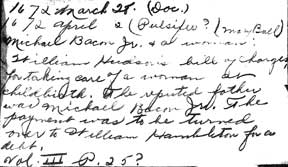 1672 March 28. (Doc.)
1672 April 2 (Pulsifer? (may Ball)
Michael Bacon Jr. & a woman:
William Hudson's bill of charges
for taking care of a woman at
childbirth. The reputed father
was Michael Bacon Jr. The
payment was to be turned
over to William Hambleton for a
debt.
Vol. III P. 25?